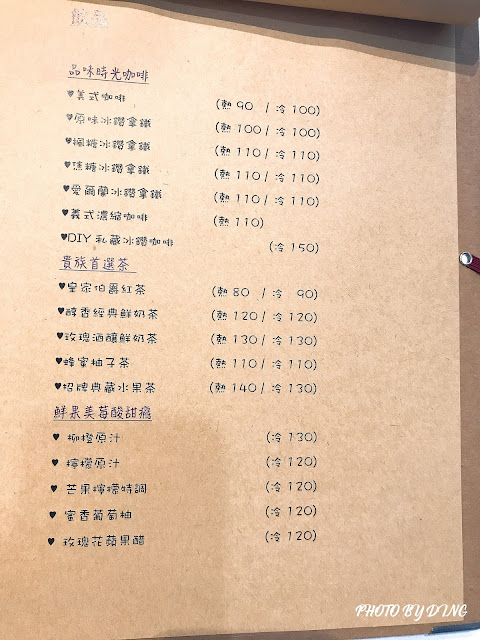 飲品
品味時光咖啡
♥美式咖啡 (熱 90 / 冷 100)
♥原味冰鑽拿鐵 (熱 100 / 冷 100)
♥楓糖冰鑽拿鐵 (熱 110 / 冷 110)
♥焦糖冰鑽拿鐵 (熱 110 / 冷 110)
♥愛爾蘭冰鑽拿鐵 (熱 110 / 冷 110)
♥義式濃縮咖啡 (熱 110)
♥DIY 私藏冰鑽咖啡 (冷 150)
貴族首選茶
♥皇家伯爵紅茶 (熱 80 / 冷 90)
♥醇香經典鮮奶茶 (熱 120 / 冷 120)
♥玫瑰酒釀鮮奶茶 (熱 130 / 冷 130)
♥蜂蜜柚子茶 (熱 110 / 冷 110)
♥招牌典藏水果茶 (熱 140 / 冷 130)
鮮果美莓酸甜癮
♥ 柳橙原汁 (冷 130)
♥ 檸檬原汁 (冷 120)
♥ 芒果檸檬特調 (冷 120)
♥ 蜜香葡萄柚 (冷 120)
♥ 玫瑰花蘋果醋 (冷 120)
PHOTO BY DING